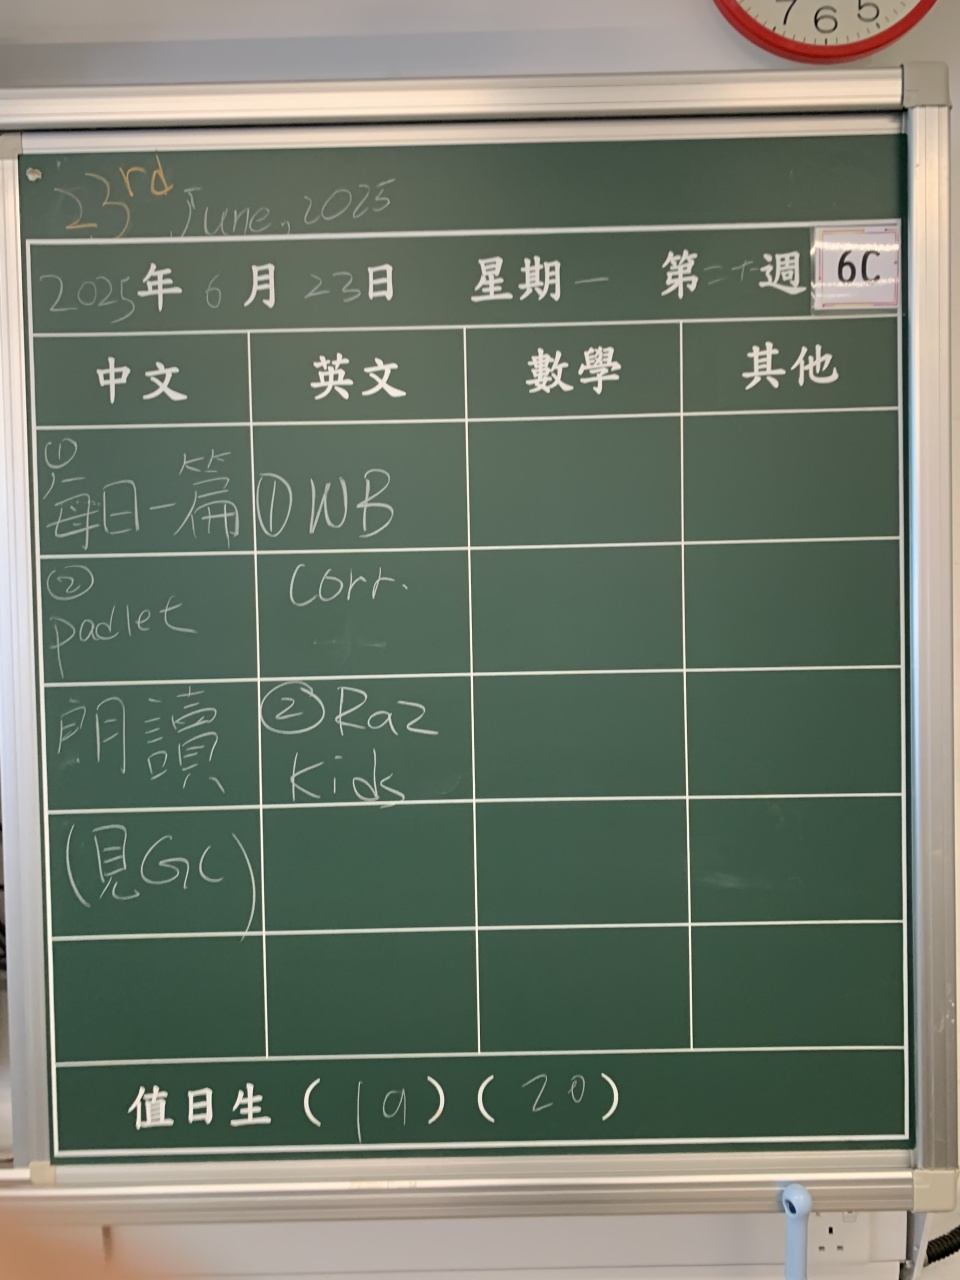 7 6 5
23rd June, 2025
2025年 6月 23日 星期一 第二十週 6C
中文 英文 數學 其他
①
每日一篇 ①WB
②
padlet Corr.
朗讀 ②Raz
Kids
(見GC)
值日生 ( 19 ) ( 20 )